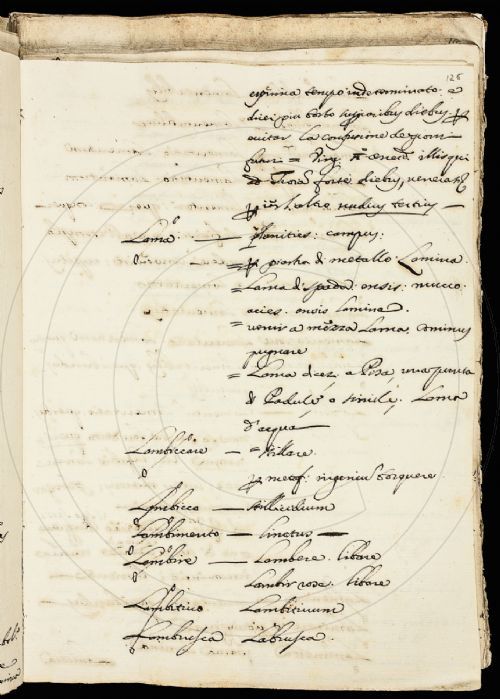 128
esprima tempo indeterminato. e
direi piu tosto superioribus diebus, p
evitar la confusione de giorni
fuori = Virg: Æneid: illisque
ad Trojam forte diebus, venerat
nudius tertius —
Lama — planities: campus:
p piastra di metallo. Lamina.
= Lama di spada. ensis: mucro
acies. ensis lamina.
= venir a mezza Lama. Cominus
pugnare
= Lama dicesi a Pisa, una punta
di Padule, o simile. Lama
d'acqua —
Lambiccare — = stillare.
p metaf: ingenium torquere.
Lambicco — stillicidium
Lambimento — linctus, —
Lambire — Lambere. libare
Lambir rose. libare
Lambitivo Lambitivum
Lambrusca Labrusca.